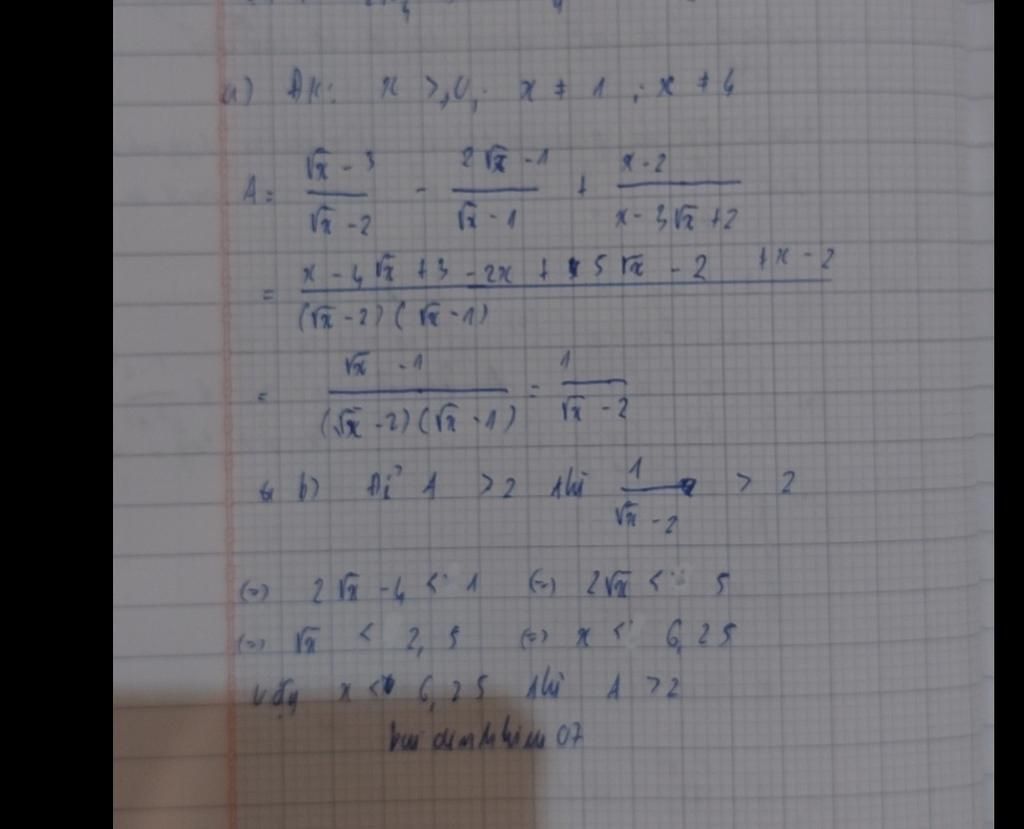 a) ĐK: x ≥ 0; x ≠ 1; x ≠ 4
A = (√x - 3)/(√x - 2) - (2√x - 1)/(√x - 1) + (x - 2)/(x - 3√x + 2)
= (x - 4√x + 3 - 2x + 5√x - 2 + x - 2)/((√x - 2)(√x - 1))
= (√x - 1)/((√x - 2)(√x - 1)) = 1/(√x - 2)
b) Để A > 2 khi 1/(√x - 2) > 2
(=) 2√x - 4 < 1 (=) 2√x < 5
(=) √x < 2,5 (=) x < 6,25
Vậy x < 6,25 khi A > 2
07